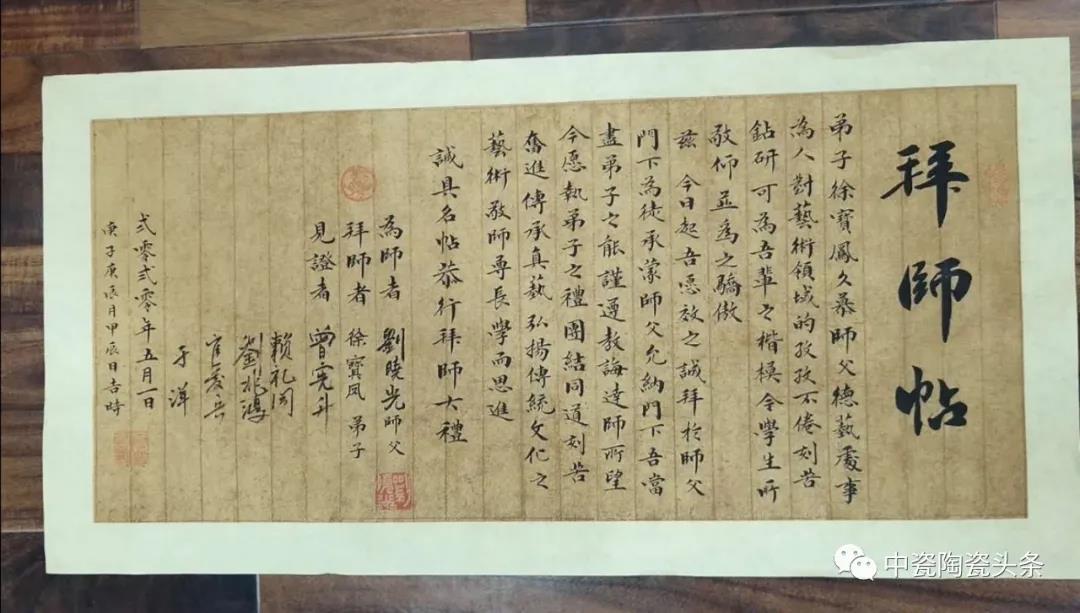 拜師帖
弟子徐寶鳳久慕師父德藝處事
為人對藝術領域的孜孜不倦刻苦
鉆研可為吾輩之楷模令學生所
敬仰並為之驕傲
茲 今日起吾愿效之誠拜於師父
門下為徒承蒙師父允納門下吾當
盡弟子之能謹遵教誨達師所望
今愿執弟子之禮團結同道刻苦
奮進傳承真藝弘揚傳統文化之
藝術敬師尊長學而思進
誠具名帖恭行拜師大禮
為師者 劉曉光師父
拜師者 徐寶凤 弟子
見證者 曾憲升
賴礼同
劉兆鴻
官爱兵
于洋
弍零弍零年五月一日
庚子庚辰月甲辰日吉時
中瓷陶瓷头条